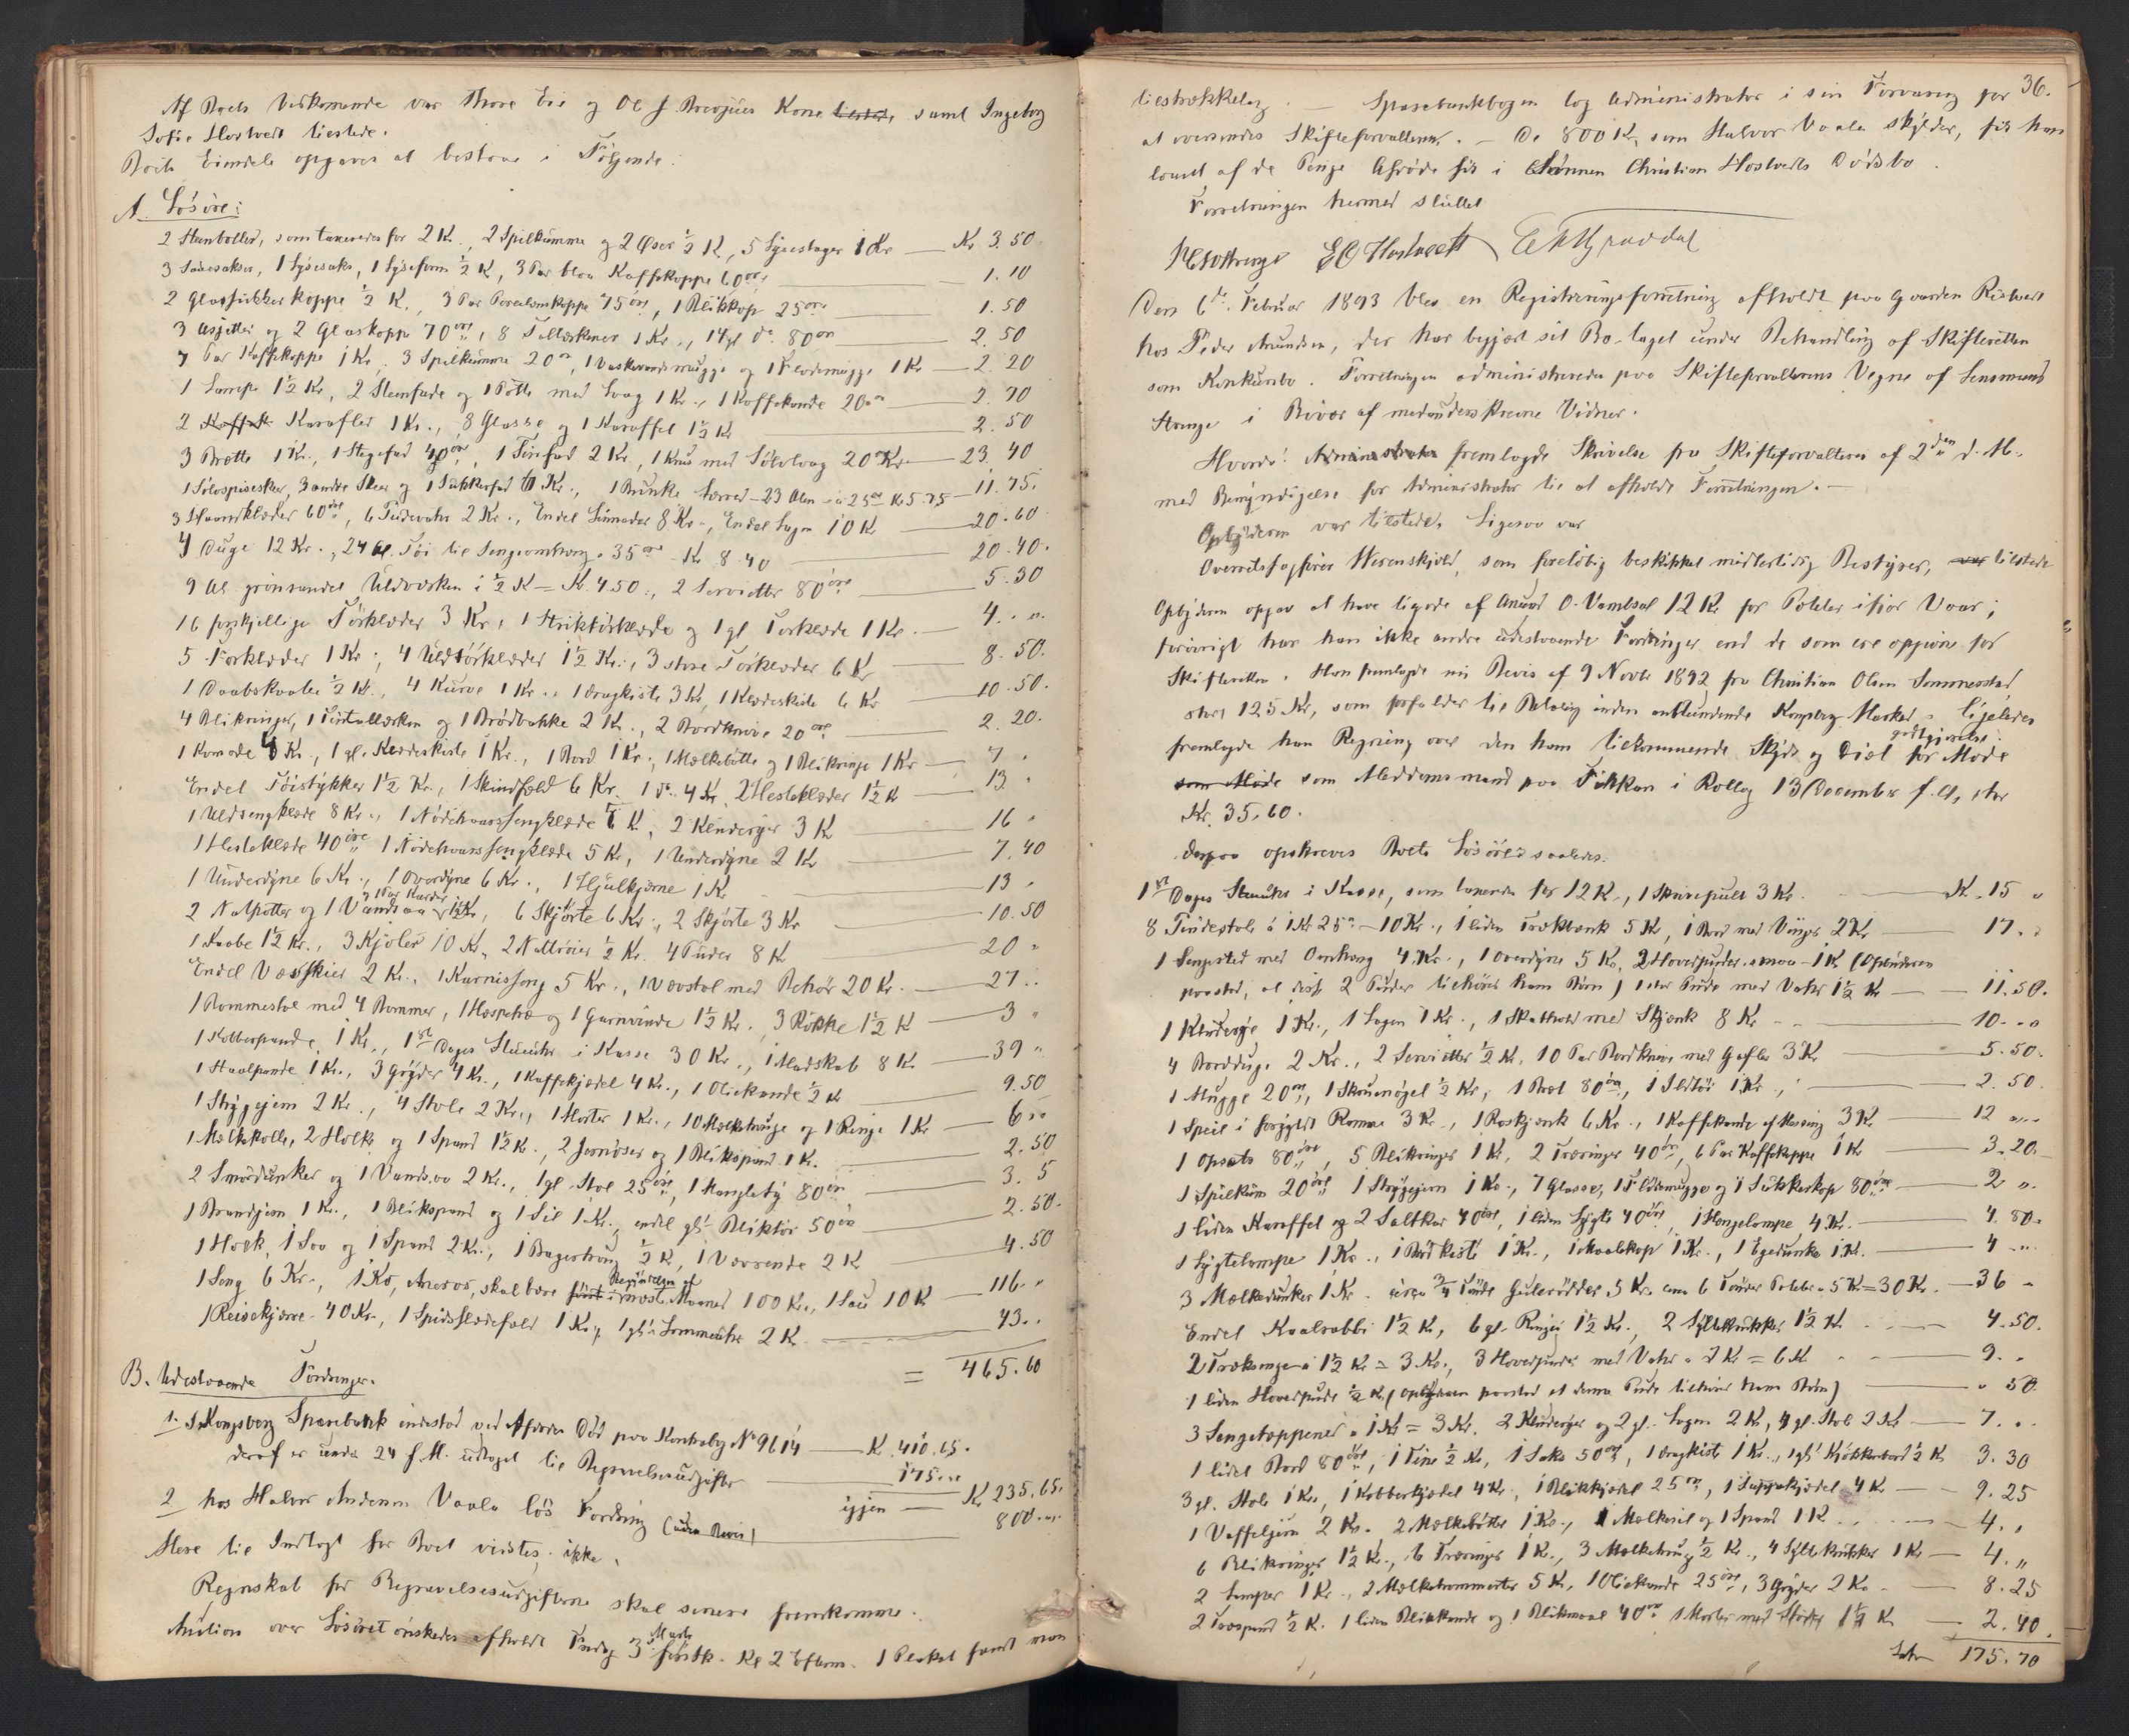 Af Boets Vedkommende var Thore Eie og Ole J. Kone samt Ingeborg
Sofie Hostvedt tilstede.
Boets Eiendele opgaves at bestaae i Følgende:
A. Løsøre:
2 Steenboller, som taxeredes for 2 Kr., 2 Spilkumme og 2 Øser ½ K, 5 Lysestager 1 Kr — Kr 3.50
3 Sauesakser, 1 Lysesaks, 1 Lyseform ½ K, 3 Par blaa Kaffekoppe 60 øre — 1.10
2 Glassukkerkoppe ½ K., 3 Par Porcelænskoppe 75 øre, 1 Blikkop 25 øre — 1.50
3 Asjetter og 2 Glaskoppe 70 øre, 8 Tallærkener 1 Kr., 14 gl. do. 80 øre — 2.50
7 Par Kaffekoppe 1 Kr., 3 Spilkumme 20 ø, 1 Vaskevandsmugge og 1 Flødemugge 1 Kr — 2.20
1 Lampe 1½ Kr, 2 Steenfade og 1 Potte med Laag 1 Kr., 1 Kaffekande 20 ø — 2.70
2 Karafler 1 Kr., 8 Glasse og 1 Karaffel 1½ Kr — 2.50
3 Brætte 1 Kr., 1 Stegefad 40 øre, 1 Tinfad 2 Kr, 1 Krus med Sølvlaag 20 Kr — 23.40
1 Sølvspiseske, 3 andre Skeer og 1 Sukkerfad 6 Kr., 1 Bunke Lærred – 23 Alen à 25 ø Kr 5.75 — 11.75.
3 Haandklæder 60 øre, 6 Pudevahr 2 Kr., Endel Linneder 8 Kr., Endel Lagn 10 Kr — 20.60
4 Duge 12 Kr., 24 Al. Tøi til Sengeomhæng à 35 øre Kr 8.40 — 20.40.
9 Al. grønrandet Uldværken à ½ K = Kr. 4.50, 2 Servietter 80 øre — 5.30
16 forskjellige Tørklæder 3 Kr, 1 Striktørklæde og 1 gl. Tørklæde 1 Kr. — 4. "
5 Forklæder 1 Kr., 4 Uldtørklæder 1½ Kr., 3 store Tørklæder 6 Kr — 8.50.
1 Daabskaabe ½ Kr., 4 Kurve 1 Kr., 1 Dragkiste 3 Kr, 1 Klædeskiste 6 Kr — 10.50.
4 Blikringer, 1 Fadtallærken og 1 Brødbakke 2 K., 2 Bordknive 20 øre — 2.20.
1 Komode 4 Kr., 1 gl. Klædeskiste 1 Kr., 1 Bord 1 Kr., 1 Mælkebøtte og 1 Blikringe 1 Kr — 7 "
Endel Tøistykker 1½ Kr., 1 Skindfæld 6 Kr., 1 do. 4 Kr, 2 Hesteklæder 1½ K — 13 "
1 Uldsengklæde 8 Kr., 1 Nødehaarssengklæde 5 K, 2 Kluderyer 3 K — 16 "
1 Hesteklæde 40 øre 1 Nødehaarssengklæde 5 K, 1 Underdyne 2 K — 7.40
1 Underdyne 6 Kr., 1 Overdyne 6 Kr., 1 Hjulkjærne 1 K — 13 "
2 Natpotter og 1 Vandsaa og 1 Par Karder 1½ Kr, 6 Skjørte 6 Kr., 2 Skjørte 3 Kr — 10.50
1 Kaabe 1½ Kr., 3 Kjoler 10 Kr, 2 Nattrøier ½ Kr. 4 Puder 8 K — 20 "
Endel Vævskier 2 Kr., 1 Karnisseng 5 Kr., 1 Vævstol med Behør 20 Kr. — 27 ..
1 Rommestol med 4 Rommer, 1 Haspetræ og 1 Garnvinde 1½ Kr. 3 Rokke 1½ K — 3 "
1 Kobberpande 1 Kr., 1 8te Dages Stueuhr i Kasse 30 Kr., 1 Madskab 8 K. — 39 "
1 Staalpande 1 Kr., 3 Gryder 4 Kr., 1 Kaffekjædel 4 Kr., 1 Oliekande ½ K — 9.50
1 Strygejern 2 Kr., 4 Stole 2 Kr., 1 Morter 1 Kr., 10 Mælketrauge og 1 Ringe 1 Kr — 6 "
1 Melkekolle, 2 Holke og 1 Spand 1½ K., 2 Jernøser og 1 Blikspand 1 K. — 2.50
2 Smørdunker og 1 Vandsaa 2 Kr., 1 gl. Stol 25 øre, 1 Mangletøj 80 øre — 3. 5
1 Brandjern 1 Kr., 1 Blikspand og 1 Sil 1 Kr., endel gl. Bliktøi 50 øre — 2.50.
1 Holk, 1 Saa og 1 Spand 2 Kr., 1 Bagertraug ½ K, 1 Vævrende 2 K — 4.50
1 Seng 6 Kr., 1 Ko, Aneros, skal bære Begyndelsen af næste Maaned 100 Kr., 1 Sau 10 K — 116. "
1 Reisekjærre 40 Kr., 1 Spidsslædefæld 1 Kr., 1 gl. Lommeuhr 2 K. — 43. .
= 465.60
B. Udestaaende Fordringer.
1. I Kongsberg Sparebank indestod ved Afdødes Død paa Kontrabog No 9614 — K. 410.65.
deraf er under 24 f. M. udtaget til Begravelsesudgifter — 175. "
igjen — Kr 235.65.
2 hos Halvor Andersen Vaala løs Fordring (uden Bevis) — 800. "
Mere til Indtægt for Boet vidstes ikke.
Regnskab for Begravelsesudgifterne skal senere fremkomme.
Auktion over Løsøret ønskedes afholdt Fredag 3. Marts førstk. Kl 2 Efterm. 1 Plakat fandt man
36.
tilstrækkelig. — Sparebankbogen tog Administrator i sin Forvaring for
at oversendes Skifteforvalteren. — De 800 K, som Halvor Vaala skylder, fik han
laant af de Penge Afdøde fik i Sønnen Christian Hostvedts Dødsbo.
Forretningen hermed sluttet
E O Hostvedt
Den 6te Februar 1893 blev en Registreringsforretning afholdt paa Gaarden Ristevedt
hos Peder Amundsen, der har begjært sit Bo taget under Behandling af Skifteretten
som Konkursbo. Forretningen administreredes paa Skifteforvalterens Vegne af Lensmand
i Overvær af medunderskrevne Vidner.
Hvorda! Administrator fremlagde Skrivelse fra Skifteforvalteren af 2den d. M.
med Bemyndigelse for Administrator til at afholde Forretningen. —
Opbyderen var tilstede. Ligesaa var
Overretssagfører Werenskjold, som foreløbig beskikket midlertidig Bestyrer, tilstede
Opbyderen opgav at have tilgode af Amund O. Vambsal 12 Kr. for Poteter ifjor Vaar;
forøvrigt har han ikke andre udestaaende Fordringer end de som ere opgivne for
Skifteretten. Han fremlagde nu Bevis af 9 Novbr 1892 fra Christian Olsen Sommerstad
stort 125 Kr, som forfalder til Betaling inden anstundende Kongsberg Marked. Ligeledes
fremlagde han Regning over den ham tilkommende Skyds og Diæt godtgjørelse for Møde
som Meddomsmand paa Fikkan i Rollag 13 December f. A., stor
Kr. 35.60.
Derpaa opskreves Boets Løsøre saaledes:
1 8te Dages Stueuhr i Kasse, som taxeredes for 12 K., 1 Skrivepult 3 Kr. — Kr. 15 "
8 Pindestole à 1 Kr 25 ø – 10 Kr., 1 liden Trækbænk 5 Kr, 1 Bord med Vinger 2 Kr — 17. "
1 Sengested med Omhæng 4 Kr., 1 Overdyne 5 Kr., 2 Hovedpuder smaa – 1 K (Opbyderen
paastod, at disse 2 Puder tilhører hans Børn) 1 stor Pude med Vahr 1½ Kr — 11.50.
1 Kluderye 1 Kr., 1 Lagen 1 Kr., 1 Skathol med Skjænk 8 Kr — 10. "
4 Bordduge 2 Kr., 2 Servietter ½ K, 10 Par Bordknive med Gafler 3 K — 5.50.
1 Mugge 20 øre, 1 ½ Kr, 1 Bræt 80 øre, 1 Ildtøi 1 Kr., — 2.50.
1 Speil i forgyldt Ramme 3 Kr., 1 Roskjænk 6 Kr., 1 Kaffekande af Messing 3 K — 12 "
1 Opsats 80 øre, 5 Blikringer 1 Kr, 2 Træringer 40 øre, 6 Par Kaffekoppe 1 K — 3.20.
1 Spilkum 20 øre 1 Strygejern 1 Kr, 7 Glasse, 1 Flødemugge og 1 Sukkerkop 80 øre — 2 "
1 liden Karaffel og 2 Saltkar 40 øre, 1 liden Lygte 40 øre, 1 Hængelampe 4 Kr. — 4.80.
1 Lygtelampe 1 Kr., 1 Brødkiste 1 Kr., 1 Maalekop 1 Kr., 1 Egedunk 1 Kr. — 4 "
3 Mælkedunker 1 Kr. circa ¾ Tønde Gulerødder 5 Kr. ca. 6 Tønder Poteter à 5 Kr = 30 Kr. — 36 "
Endel Kaalrabbi 1½ K, 6 gl. Ringer 1½ Kr., 2 Syltekrukker 1½ K — 4.50.
2 Træksenge à 1½ Kr = 3 Kr., 3 Hovedpuder med Vahr à 2 Kr = 6 K — 9. "
1 liden Hovedpude ½ K. (Opbyderen paastod at denne Pude tilhører hans Børn) — " 50.
3 Sengetæppener à 1 Kr = 3 Kr. 2 Kluderyer og 2 gl. Lagen 2 K, 4 gl. Stole 2 Kr — 7. "
1 lidet Bord 80 øre, 1 Tine ½ Kr, 1 Saks 50 øre, 1 Dragkiste 1 Kr., 1 gl. Kjøkkenbord ½ K 3.30
3 gl. Stole 1 Kr, 1 Kobberkjædel 4 Kr., 1 Blikkjædel 25 øre, 1 Suppekjedel 4 K — 9.25
1 Vaffeljern 2 Kr. 2 Mælkebøtter 1 Kr., 1 Mælkesil og 1 Spand 1 K — 4. "
6 Blikringer 1½ K., 6 Træringer 1 K., 3 Mælketraug ½ Kr., 4 Syltekrukker 1 Kr — 4. "
2 Lamper 1 Kr., 5 K, 1 Oliekande 25 øre, 3 Gryder 2 Kr. — 8.25
2 Træspand ½ K. 1 liden Blikkande og 1 Blikmaal 40 øre 1 Morter med Støder 1½ K — 2.40.
Latus 175.70